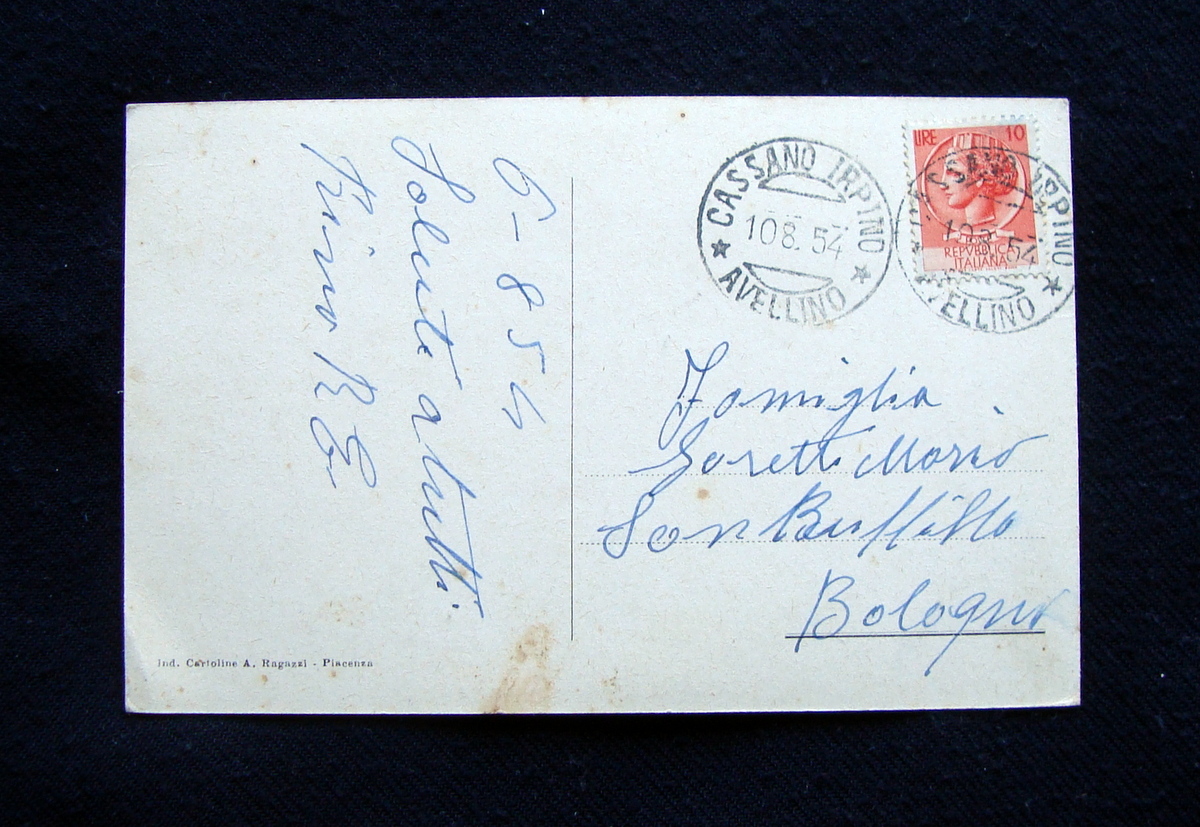 6-8 54
Saluti a tutti
CASSANO IRPINO
10 8. 54
AVELLINO
LIRE 10
REPVBBLICA
ITALIANA
CASSANO IRPINO
10 8. 54
AVELLINO
Famiglia
Goretti Mario
San Ruffillo
Bologna
Ind. Cartoline A. Ragazzi - Piacenza